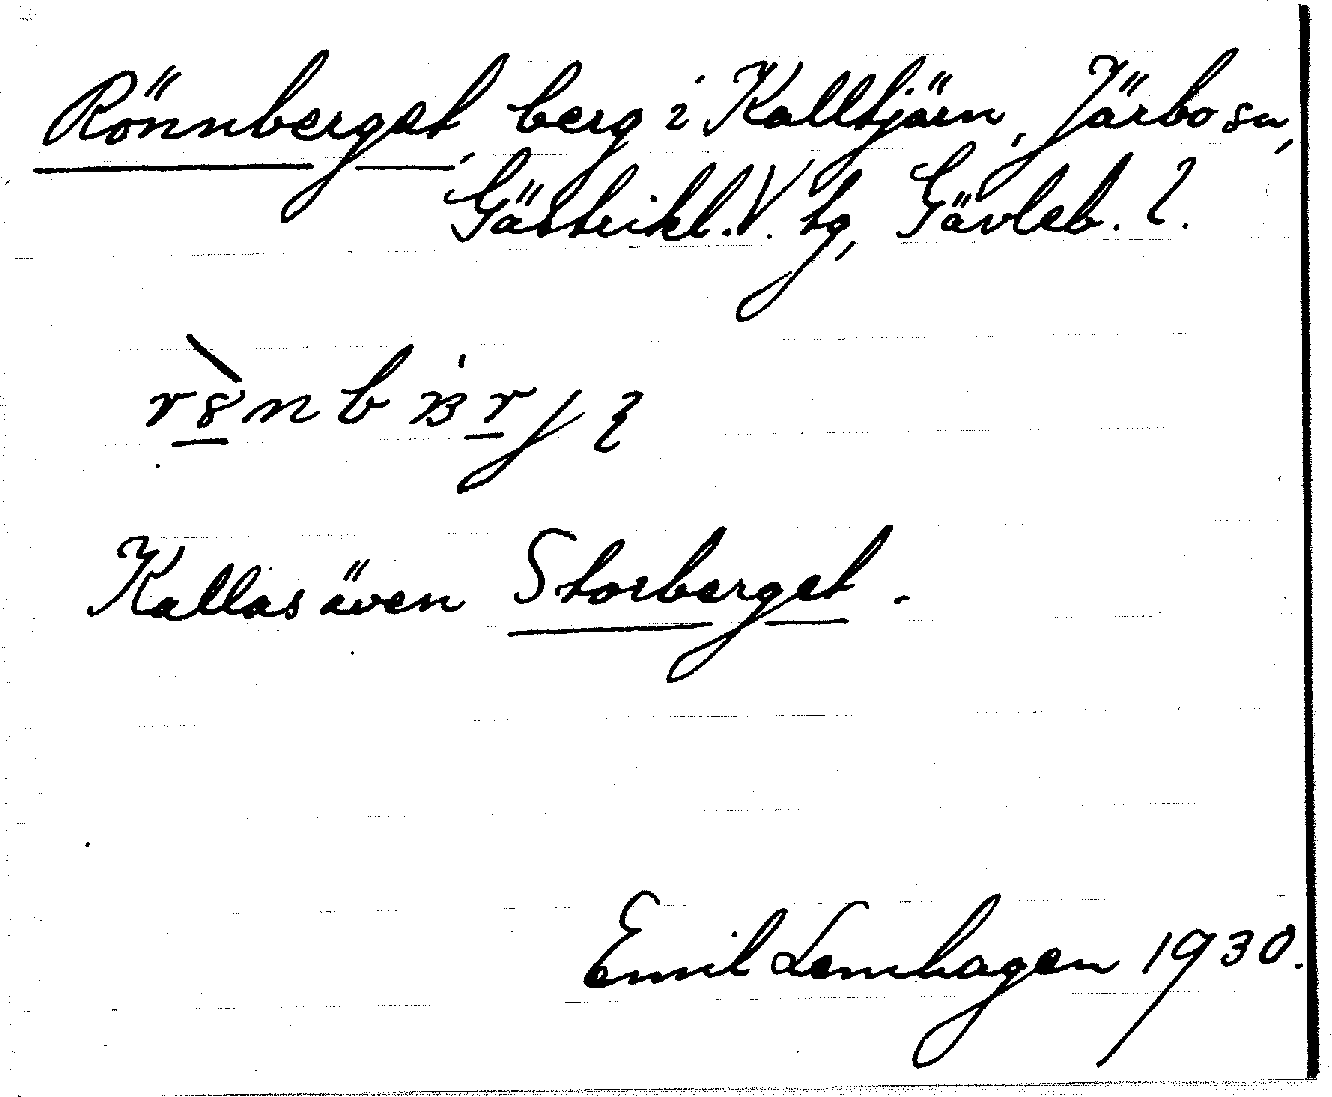 Rönnberget, berg i Kalltjärn, Järbo sn,
Gästrikl. V. tg, Gävleb. l.
Kallas även Storberget.
Emil Lenhagen 1930.